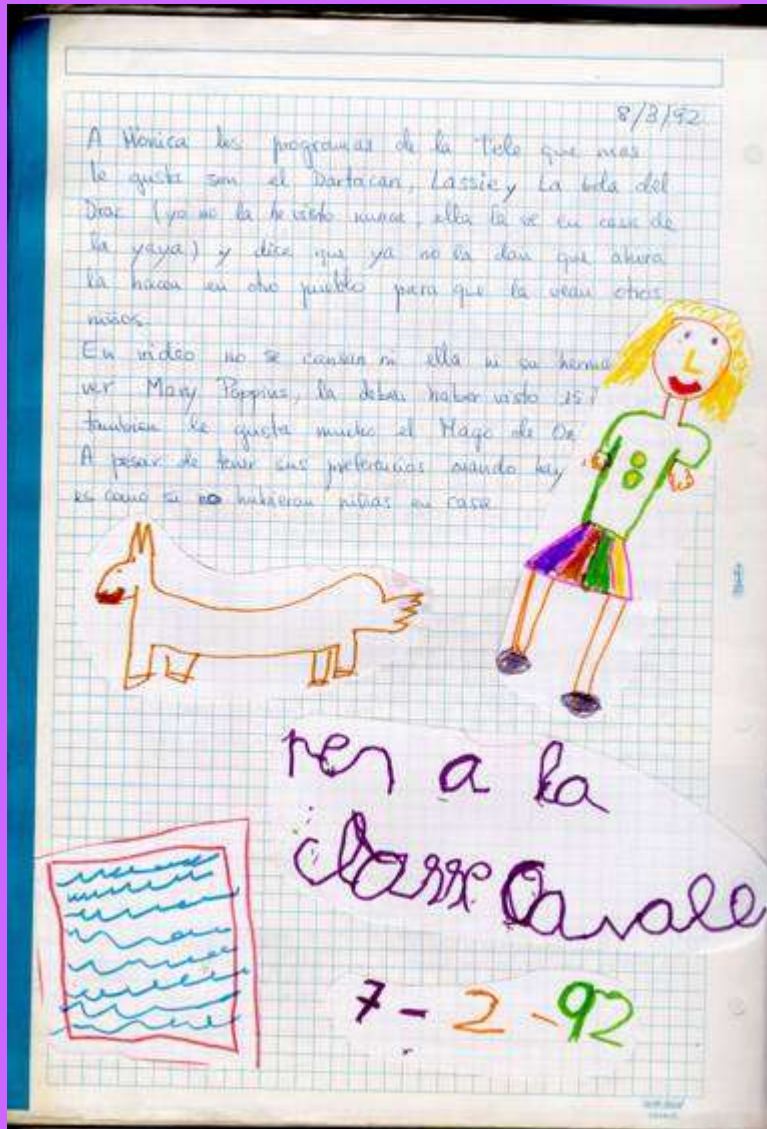 8/3/92
A Mónica los programas de la Tele que mas
le gusta son el Dartacan, Lassie y La bda del
Drac (yo no la he visto nunca, ella la ve en casa de
la yaya) y dice que ya no la dan que ahora
la hacen en otro pueblo para que la vean otros
niños.
En video no se cansan ni ella ni su herma
ver Mary Poppins, la deben haber visto 15
tambien le gusta mucho el Mago de Oz
A pesar de tener sus preferencias cuando hay
es como si no hubieran niñas en casa
per a la
classe Cavall
7-2-92